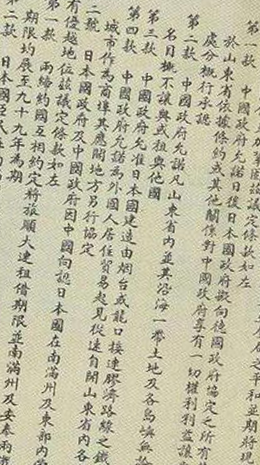 之平和並期將現
議定條款如左
第一款 中國政府允諾日後日本國政府擬向德國政府協定之所有
於山東省依據條約或其他關係對中國政府享有一切權利利益讓
處分概行承認
第二款 中國政府允諾凡山東省內並其沿海一帶土地及各島嶼無論
名目概不讓與或租與他國
第三款 中國政府允准日本國建造由烟台或龍口接連膠濟路線之鐵
第四款 中國政府允諾為外國人居住貿易起見從速自開山東省內各
城市作為商埠其應開地方另行協定
二號 日本國政府及中國政府因中國向認日本國在南滿州及東部內
有優越地位茲議定條款如左
第一款 兩締約國互相約定將旅順大連租借期限並南滿州及安奉兩
期限均展至九十九年為期
二款 日本國臣民在